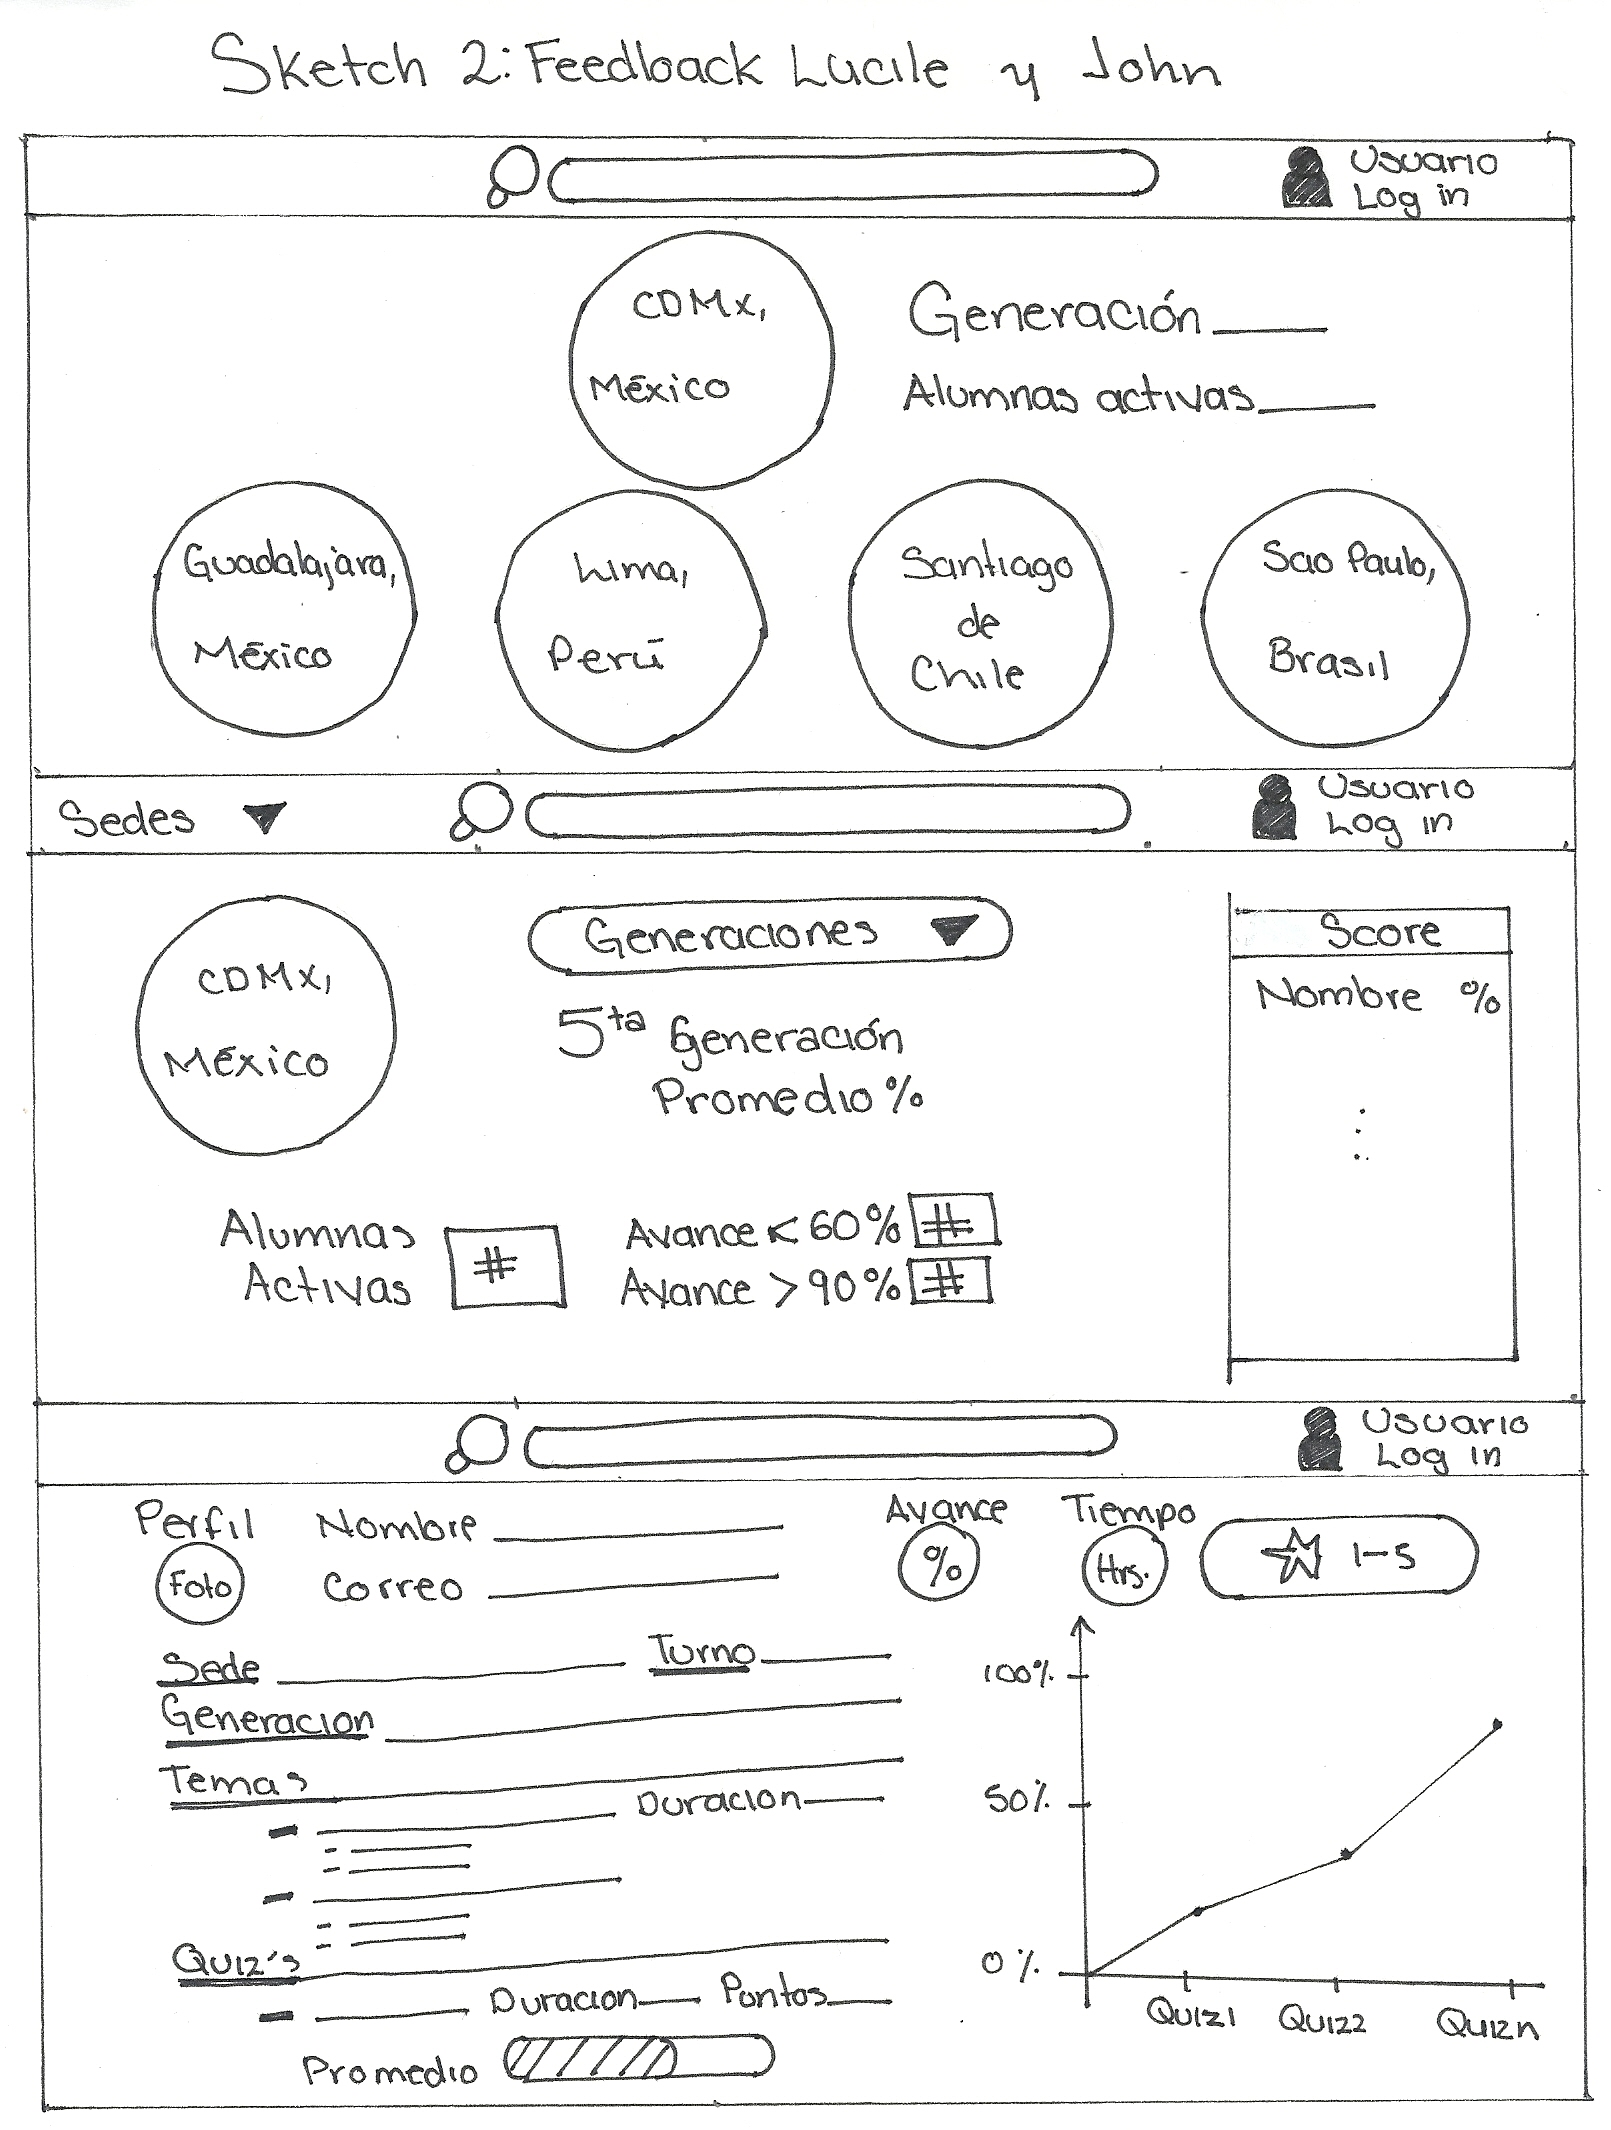 Sketch 2: Feedback Lucile y John
Usuario
Log in
CDMX,
México
Generación
Alumnas activas
Guadalajara,
México
Lima,
Perú
Santiago
de
Chile
Sao Paulo,
Brasil
Sedes
Usuario
Log in
CDMX,
México
Generaciones
5ta Generación
Promedio %
Score
Nombre %
Alumnas
Activas
#
Avance < 60% #
Avance > 90% #
Usuario
Log in
Perfil
Foto
Nombre
Correo
Avance
%
Tiempo
Hrs.
1-5
Sede
Turno
Generacion
Temas
Duracion
Quiz's
Duracion
Puntos
Promedio
100%
50%
0%
Quiz1 Quiz2 Quizn